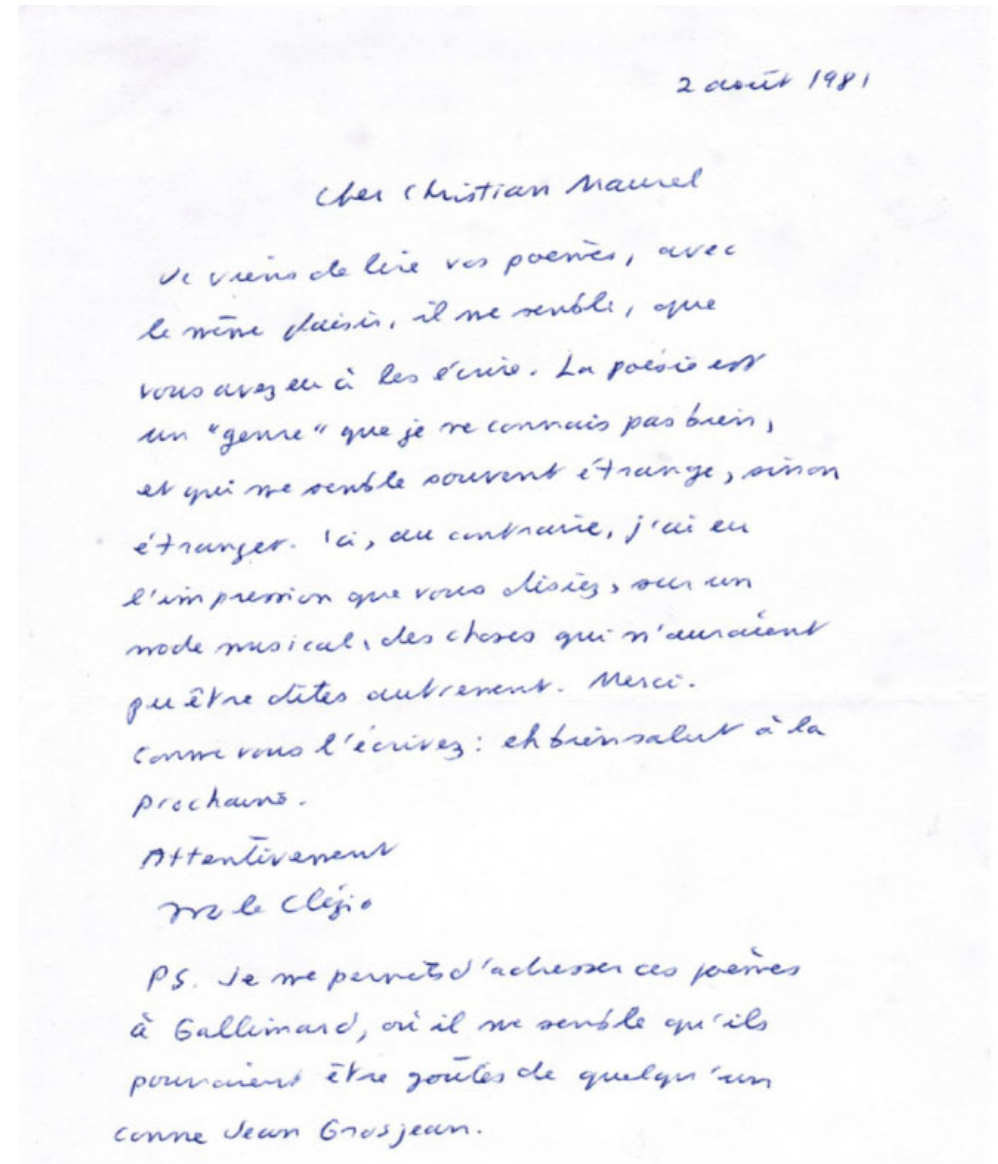 2 août 1981
Cher Christian Maurel
Je viens de lire vos poèmes, avec
le même plaisir, il me semble, que
vous avez eu à les écrire. La poésie est
un "genre" que je ne connais pas bien,
et qui me semble souvent étrange, sinon
étranger. Ici, au contraire, j'ai eu
l'impression que vous disiez, sur un
mode musical, des choses qui n'auraient
pu être dites autrement. Merci.
Comme vous l'écrivez : eh bien salut à la
prochaine.
Attentivement
JMG Le Clézio
PS. Je me permets d'adresser ces poèmes
à Gallimard, où il me semble qu'ils
pourraient être goûtés de quelqu'un
comme Jean Grosjean.